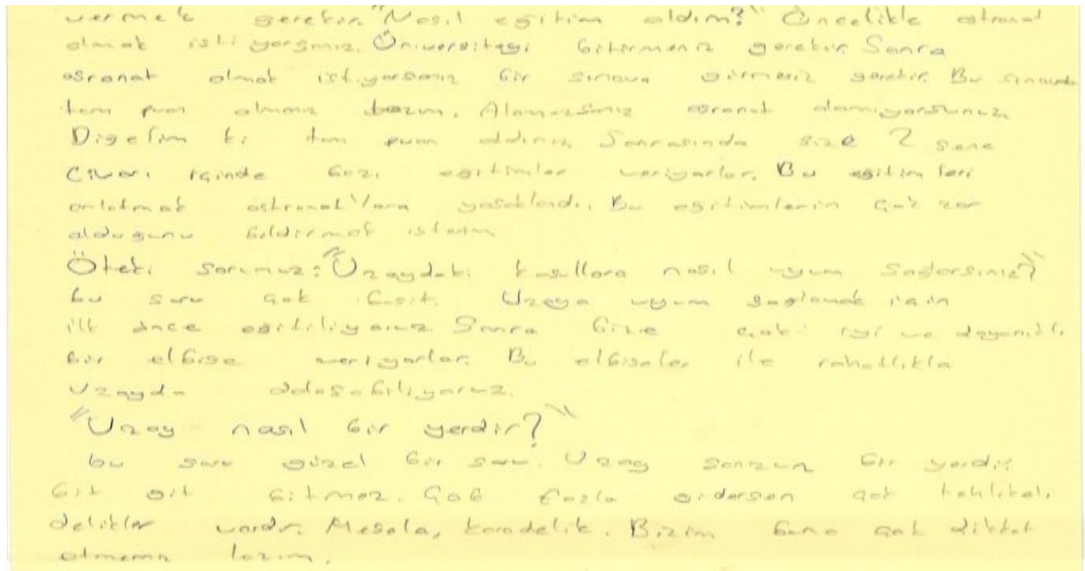 vermek gerekir. "Nasıl eğitim aldım?" Öncelikle astronat
olmak istiyorsanız. Üniversiteyi bitirmeniz gerekir. Sonra
asronat olmak istiyorsanız bir sınava girmeniz gerekir. Bu sınavda
tam puan almanız lazım. Alamazsanız asronat olamıyorsunuz.
Diyelim ki tam puan aldınız. Sonrasında size 2 sene
civarı içinde bazı eğitimler veriyorlar. Bu eğitimleri
anlatmak astronat'lara yasaklandı. Bu eğitimlerin çok zor
olduğunu bildirmek isterim.
Öteki sorumuz: "Uzaydaki koşullara nasıl uyum sağlarsınız?"
bu soru çok basit. Uzaya uyum sağlamak için
ilk önce eğitiliyoruz. Sonra bize çok iyi ve dayanıklı
bir elbise veriyorlar. Bu elbiseler ile rahatlıkla
uzayda dolaşabiliyoruz.
"Uzay nasıl bir yerdir?"
bu soru güzel bir soru. Uzay sonzun bir yerdir.
Git git bitmez. Çok fazla gidersen çok tehlikeli
delikler vardır. Mesela, karadelik. Bizim buna çok dikkat
etmemiz lazım.